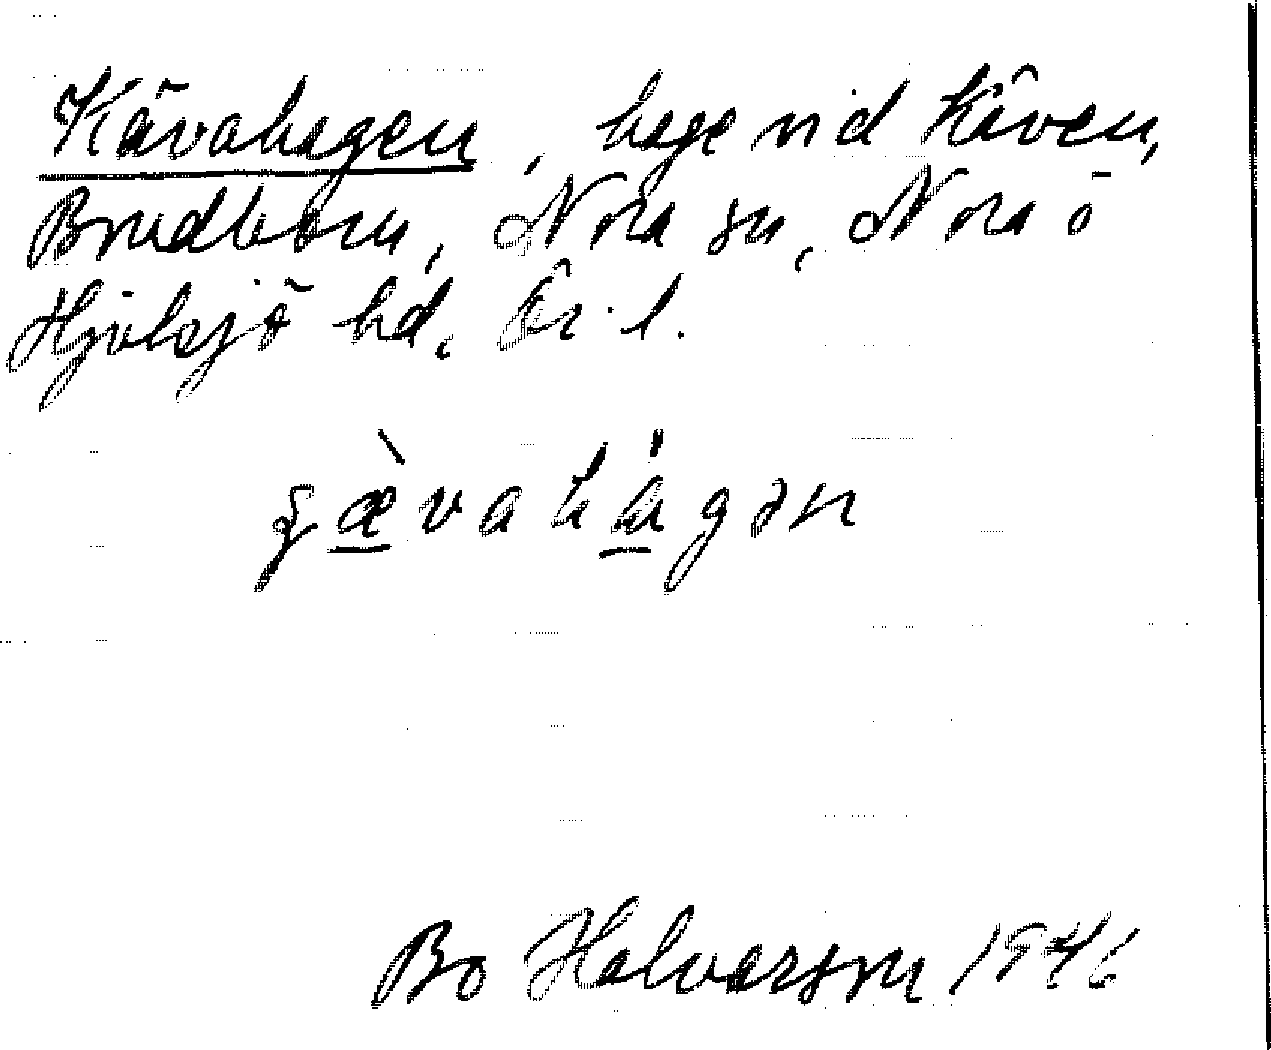 Kävahagen, hage vid Käven,
Bredboru, Nora sn, Nora o
Hjulsjö hd, Ör. l.
Bo Halvarson 1946